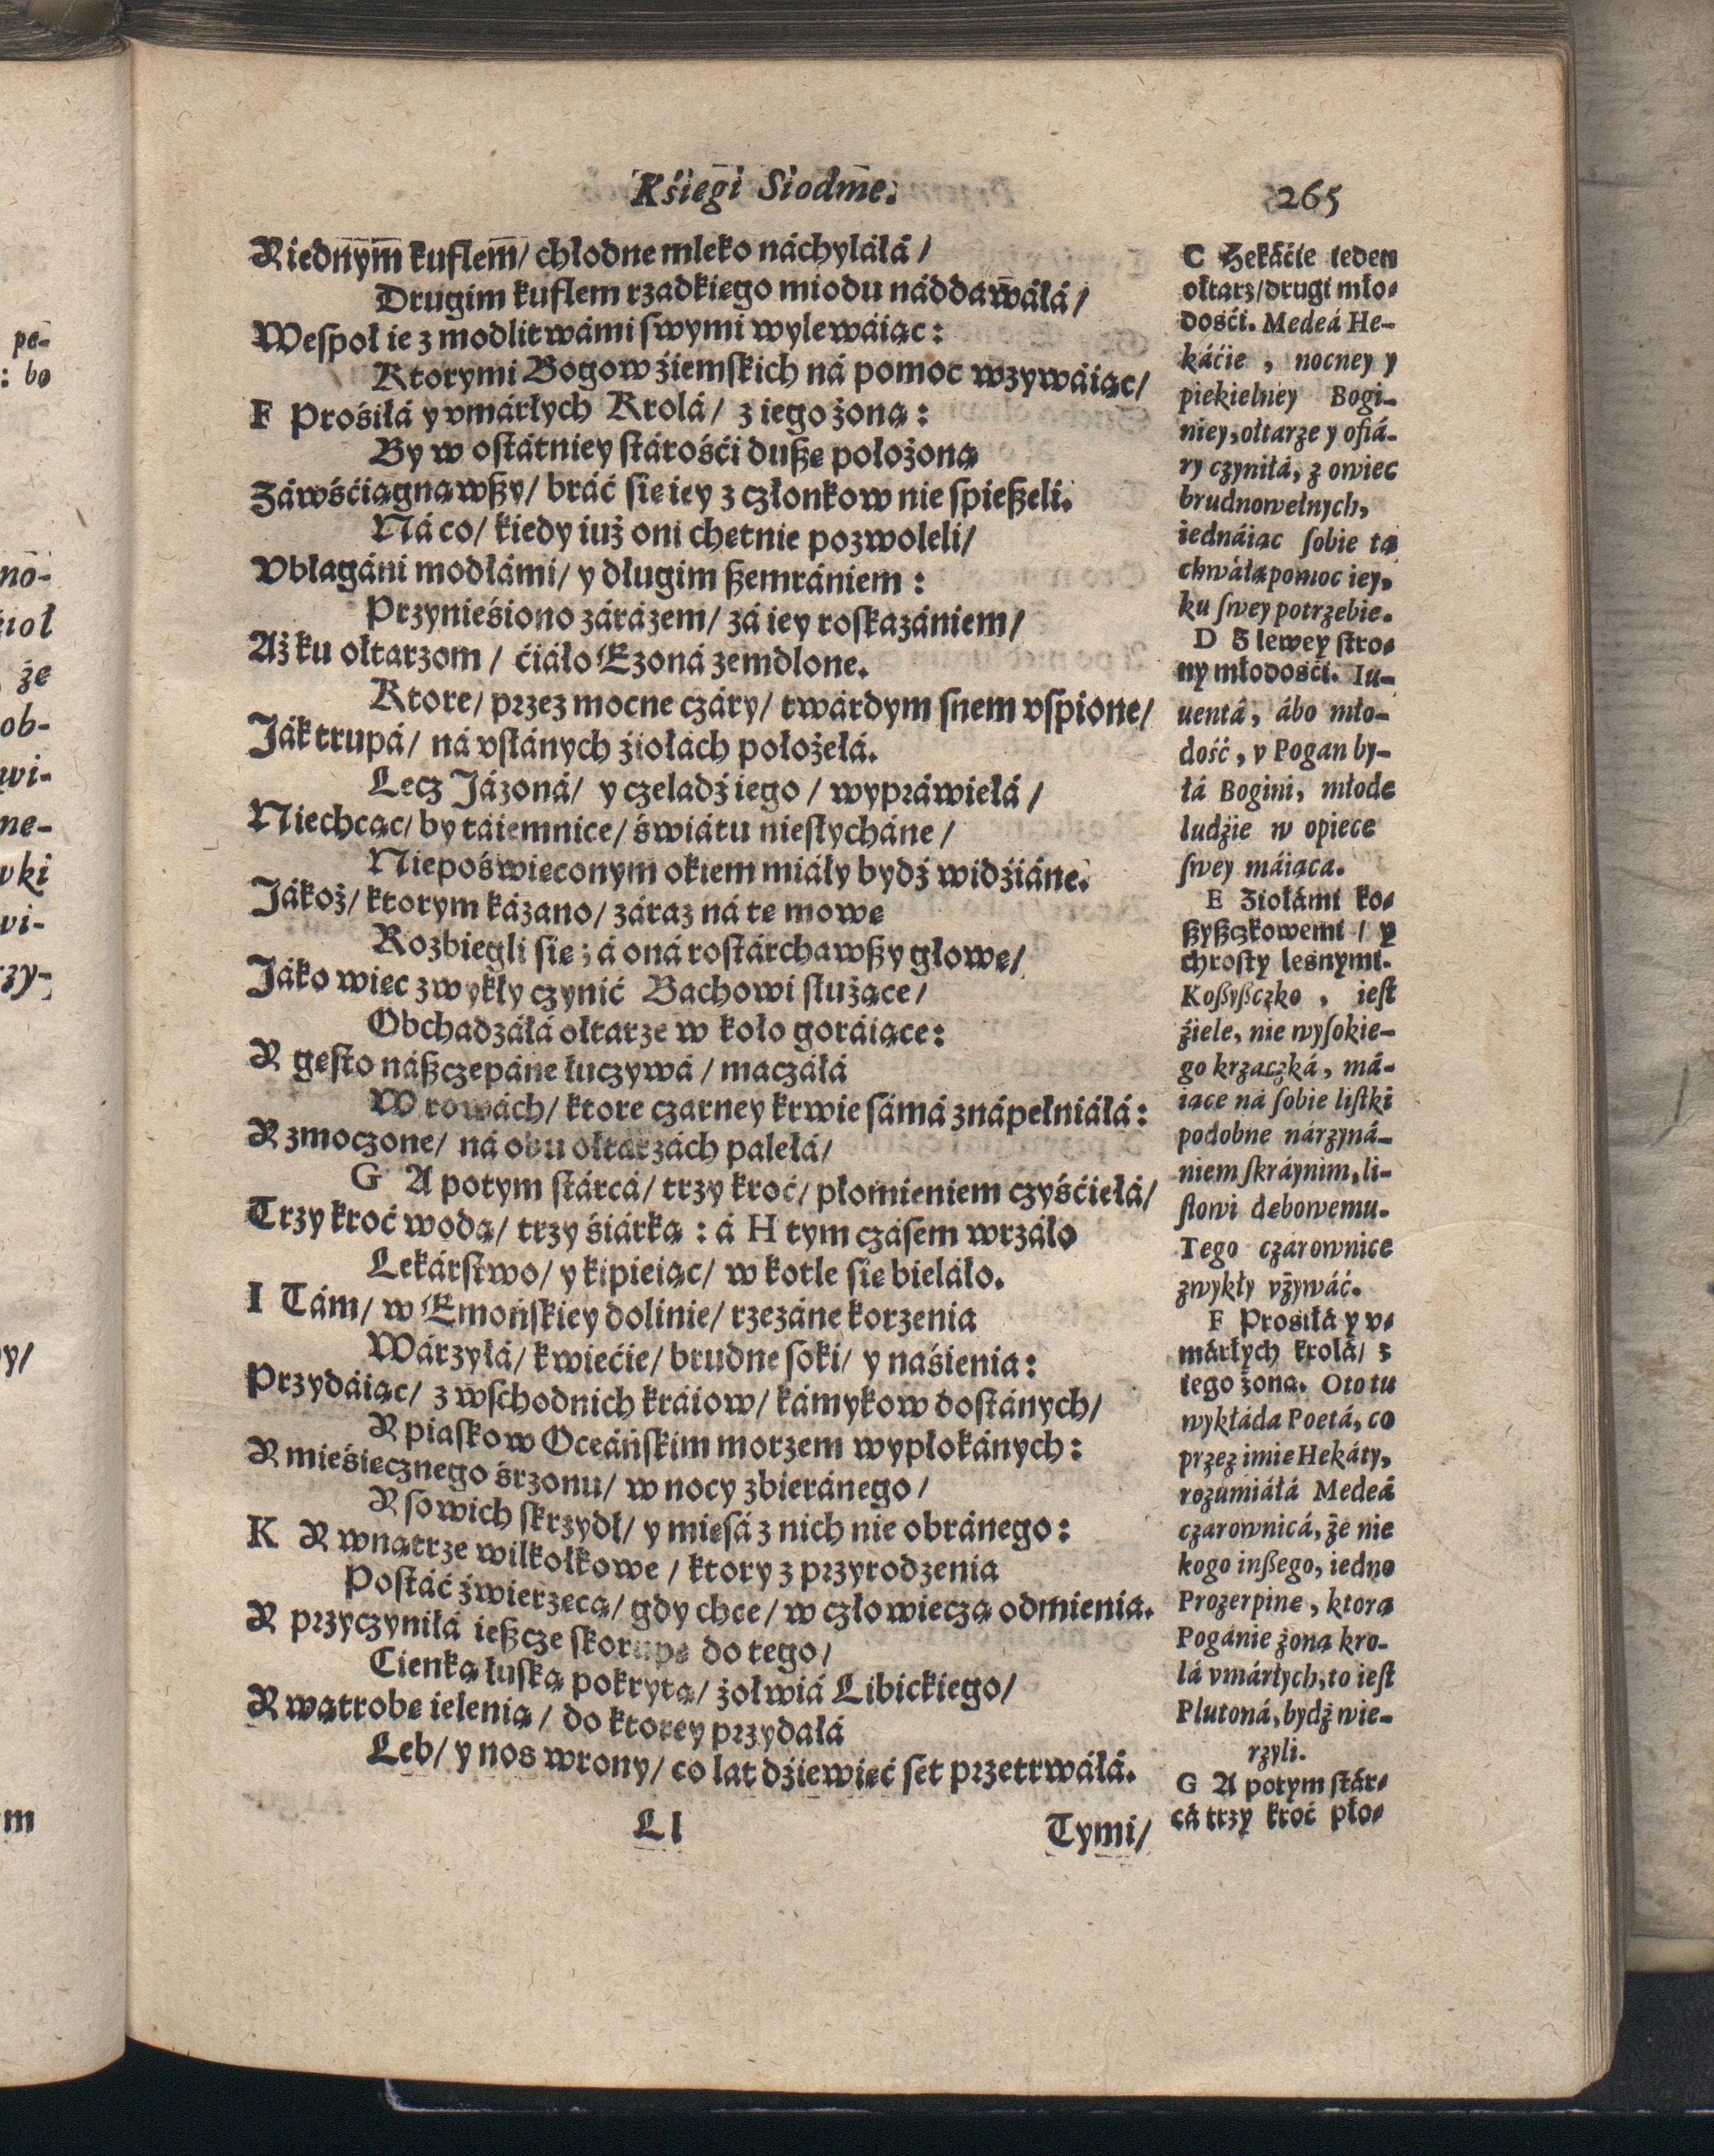 Kśięgi Siodme.
265
Y iednym kuflem/ chłodne mleko náchyláłá/
Drugim kuflem rzadkiego miodu náddawáłá/
Weſpoł ie z modlitwámi ſwymi wylewáiąc:
Ktorymi Bogow źiemſkich ná pomoc wzywáiąc/
F Prośiłá y vmárłych Krolá/ z iego żoną:
By w oſtátniey ſtárośći dußę położoną
Záwśćiągnąwßy/ bráć się iey z członkow nie ſpießeli.
Ná co/ kiedy iuż oni chętnie pozwoleli/
Vbłagáni modłámi/ y długim ßemrániem:
Przynieśiono zárázem/ zá iey roſkazániem/
Aż ku ołtarzom/ ćiáło Ezoná zemdlone.
Ktore/ przez mocne czáry/ twárdym ſnem vſpione/
Ják trupá/ ná vſłánych źiołách położełá.
Lecz Jázoná/ y czeladź iego/ wypráwiełá/
Niechcąc/ by táiemnice/ świátu niesłycháne/
Niepoświęconym okiem miáły bydź widźiáne.
Jákoż/ ktorym kázano/ záraz ná tę mowę
Rozbiegli się; á oná roſtárchawßy głowę/
Jáko więc zwykły czynić Bachowi służące/
Obchadzáłá ołtarze w koło goráiące:
Y gęſto náßczepáne łuczywá/ maczáłá
W rowách/ ktore czarney krwie sámá znápełniáłá:
Y zmoczone/ ná obu ołtarzách palełá/
G A potym ſtárcá/ trzy kroć/ płomieniem czyśćiełá/
Trzy kroć wodą/ trzy śiárką: á H tym czáſem wrzáło
Lekárſtwo/ y kipieiąc/ w kotle się bieláło.
I Tám/ w Emońſkiey dolinie/ rzezáne korzenia
Wárzyłá/ kwiećie/ brudne ſoki/ y naśienia:
Przydáiąc/ z wſchodnich kráiow/ kámykow doſtánych/
Y piaſkow Oceáńſkim morzem wypłokánych:
Y mieśięcznego śrzonu/ w nocy zbieránego/
Y ſowich ſkrzydł/ y mięsá z nich nie obránego:
K Y wnątrze wilkołkowe/ ktory z przyrodzenia
Poſtáć źwierzęcą/ gdy chce/ w człowieczą odmienia.
Y przyczyniłá ießcze ſkorupę do tego/
Cienką łuſką pokrytą/ żołwiá Libickiego/
Y wątrobę ielenią/ do ktorey przydałá
Łeb/ y nos wrony/ co lat dźiewięć ſet przetrwáłá.
Ll
Tymi/
C Hekáćie ieden
ołtarz/ drugi mło-
dośći. Medeá He-
káćie, nocney y
piekielney Bogi-
niey, ołtarze y ofiá-
ry czyniłá, z owiec
brudnowełnych,
iednáiąc ſobie tą
chwałą pomoc iey,
ku ſwey potrzebie.
D Z lewey ſtro-
ny młodośći. Iu-
uentá, ábo mło-
dość, v Pogan by-
łá Bogini, młode
ludźie w opiece
ſwey máiąca.
E Ziołámi ko-
ßyßczkowemi/ y
chroſty leśnymi.
Koßyßczko, ieſt
źiele, nie wyſokie-
go krzaczká, má-
iące ná ſobie liſtki
podobne nárzyná-
niem ſkráynim, li-
ſtowi dębowemu.
Tego czárownice
zwykły vżywáć.
F Prośiłá y v-
márłych krolá/ z
iego żoną. Oto tu
wykłáda Poetá, co
przez imię Hekáty,
rozumiáłá Medeá
czarownicá, że nie
kogo inßego, iedno
Prozerpinę, ktorą
Pogánie żoną kro-
lá vmárłych, to ieſt
Plutoná, bydź wie-
rzyli.
G A potym ſtár-
cá trzy kroć pło-